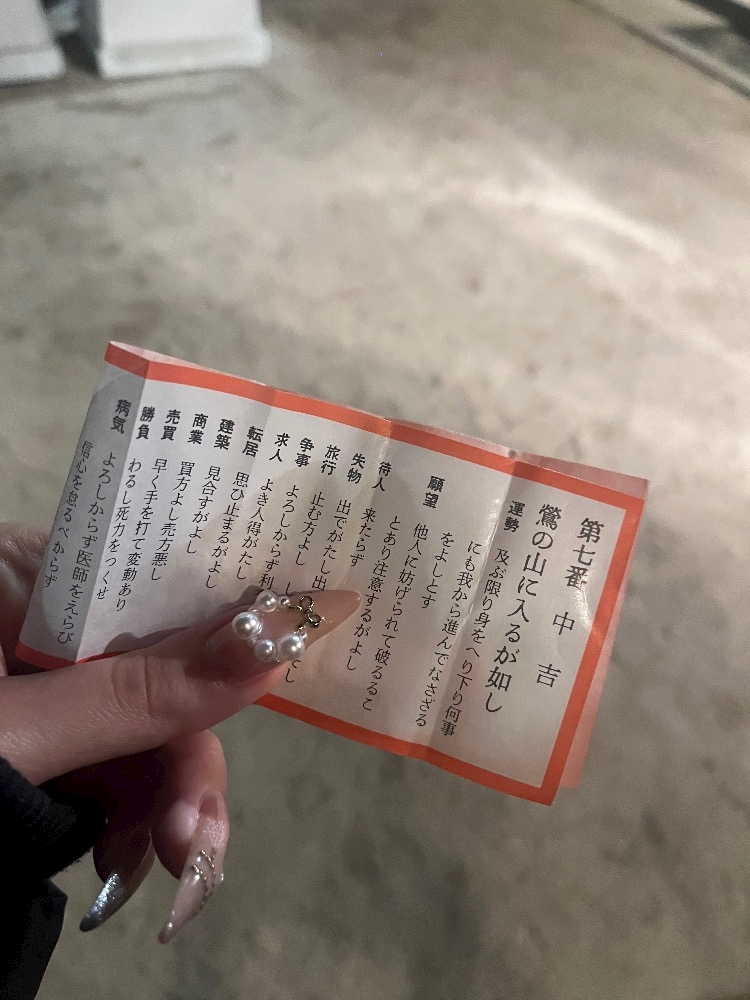 第七番 中吉
鶯の山に入るが如し
運勢 及ぶ限り身をへり下り何事
にも我から進んでなさざる
をよしとす
願望 他人に妨げられて破るるこ
とあり注意するがよし
待人 来たらず
失物 出でがたし出
旅行 止む方よし
争事 よろしからず利
求人 よき人得がたし
転居 思ひ止まるがよし
建築 見合すがよし
商業 買方よし売方悪し
売買 早く手を打て変動あり
勝負 わるし死力をつくせ
病気 よろしからず医師をえらび
信心を怠るべからず